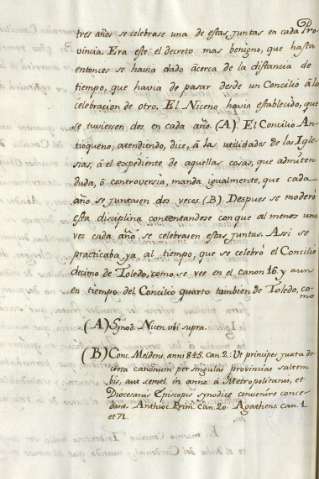 tres años se celebrase una de estas juntas en cada Pro
vincia. Era este el decreto mas benigno, que hasta
entonces se havia dado acerca de la distancia de
tiempo, que havia de pasar desde un Concilio à la
celebracion de otro. El Niceno havia establecido, que
se tuviesen dos en cada año (A) El Concilio An
tioqueno, atendiendo, dice, à la utilidades de las Igle
sias, ò el expediente de aquellas cosas, que admiten
duda, ò controversia, manda igualmente, que cada
año se junta en dos veces. (B) Despues se moderó
esta disciplina contentandose conque al menos una
vez cada año se celebrasen estas juntas. Assi se
practicaba ya al tiempo, que se celebrò el Concilio
decimo de Toledo, como se vee en el canon 16, y aun
en tiempo del Concilio quarto tambien de Toledo, co
mo
(A) Synod. Nicen ubi supra.
(B) Conc. Meldens. anni 845. can. 2. Ut principes juxta de
creta canonum per singulas provincias saltem
bis, aut semel in anno à Metropolitanis, et
Diocesanis Episcopis synodice convenire conce
dant. Antioc. Can. 20. Agathens. Can.
et 71.